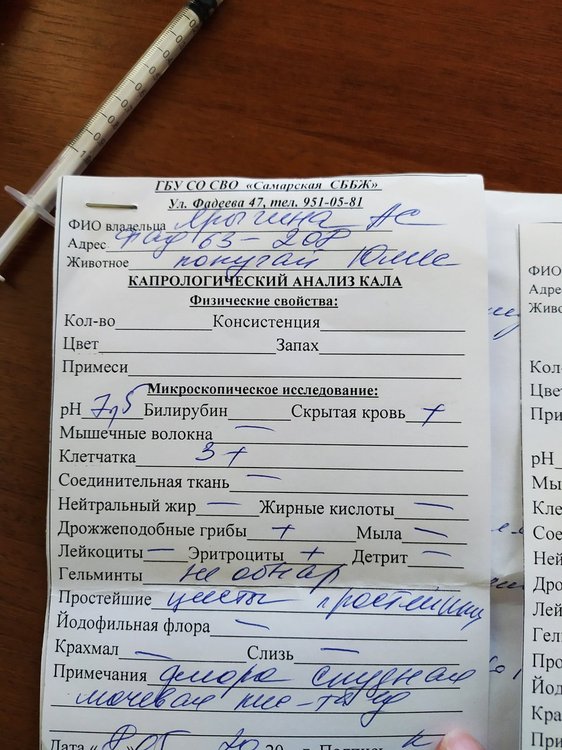 ГБУ СО СВО «Самарская СББЖ»
Ул. Фадеева 47, тел. 951-05-81
ФИО владельца Ярыгина АС
Адрес 63-208
Животное попугай
КАПРОЛОГИЧЕСКИЙ АНАЛИЗ КАЛА
Физические свойства:
Кол-во Консистенция
Цвет Запах
Примеси
Микроскопическое исследование:
рН 7,5 Билирубин Скрытая кровь +
Мышечные волокна —
Клетчатка 3+
Соединительная ткань —
Нейтральный жир — Жирные кислоты —
Дрожжеподобные грибы + Мыла —
Лейкоциты — Эритроциты + Детрит —
Гельминты не обнар
Простейшие цисты простейших
Йодофильная флора —
Крахмал — Слизь —
Примечания флора скудная
мочевая кис-та
Дата « 05 20 20 г. Подпись
ФИО
Адре
Живо
Кол-
Цвет
При
рН
Мы
Кле
Сое
Ней
Дро
Лей
Гел
Про
Йод
Кра
При